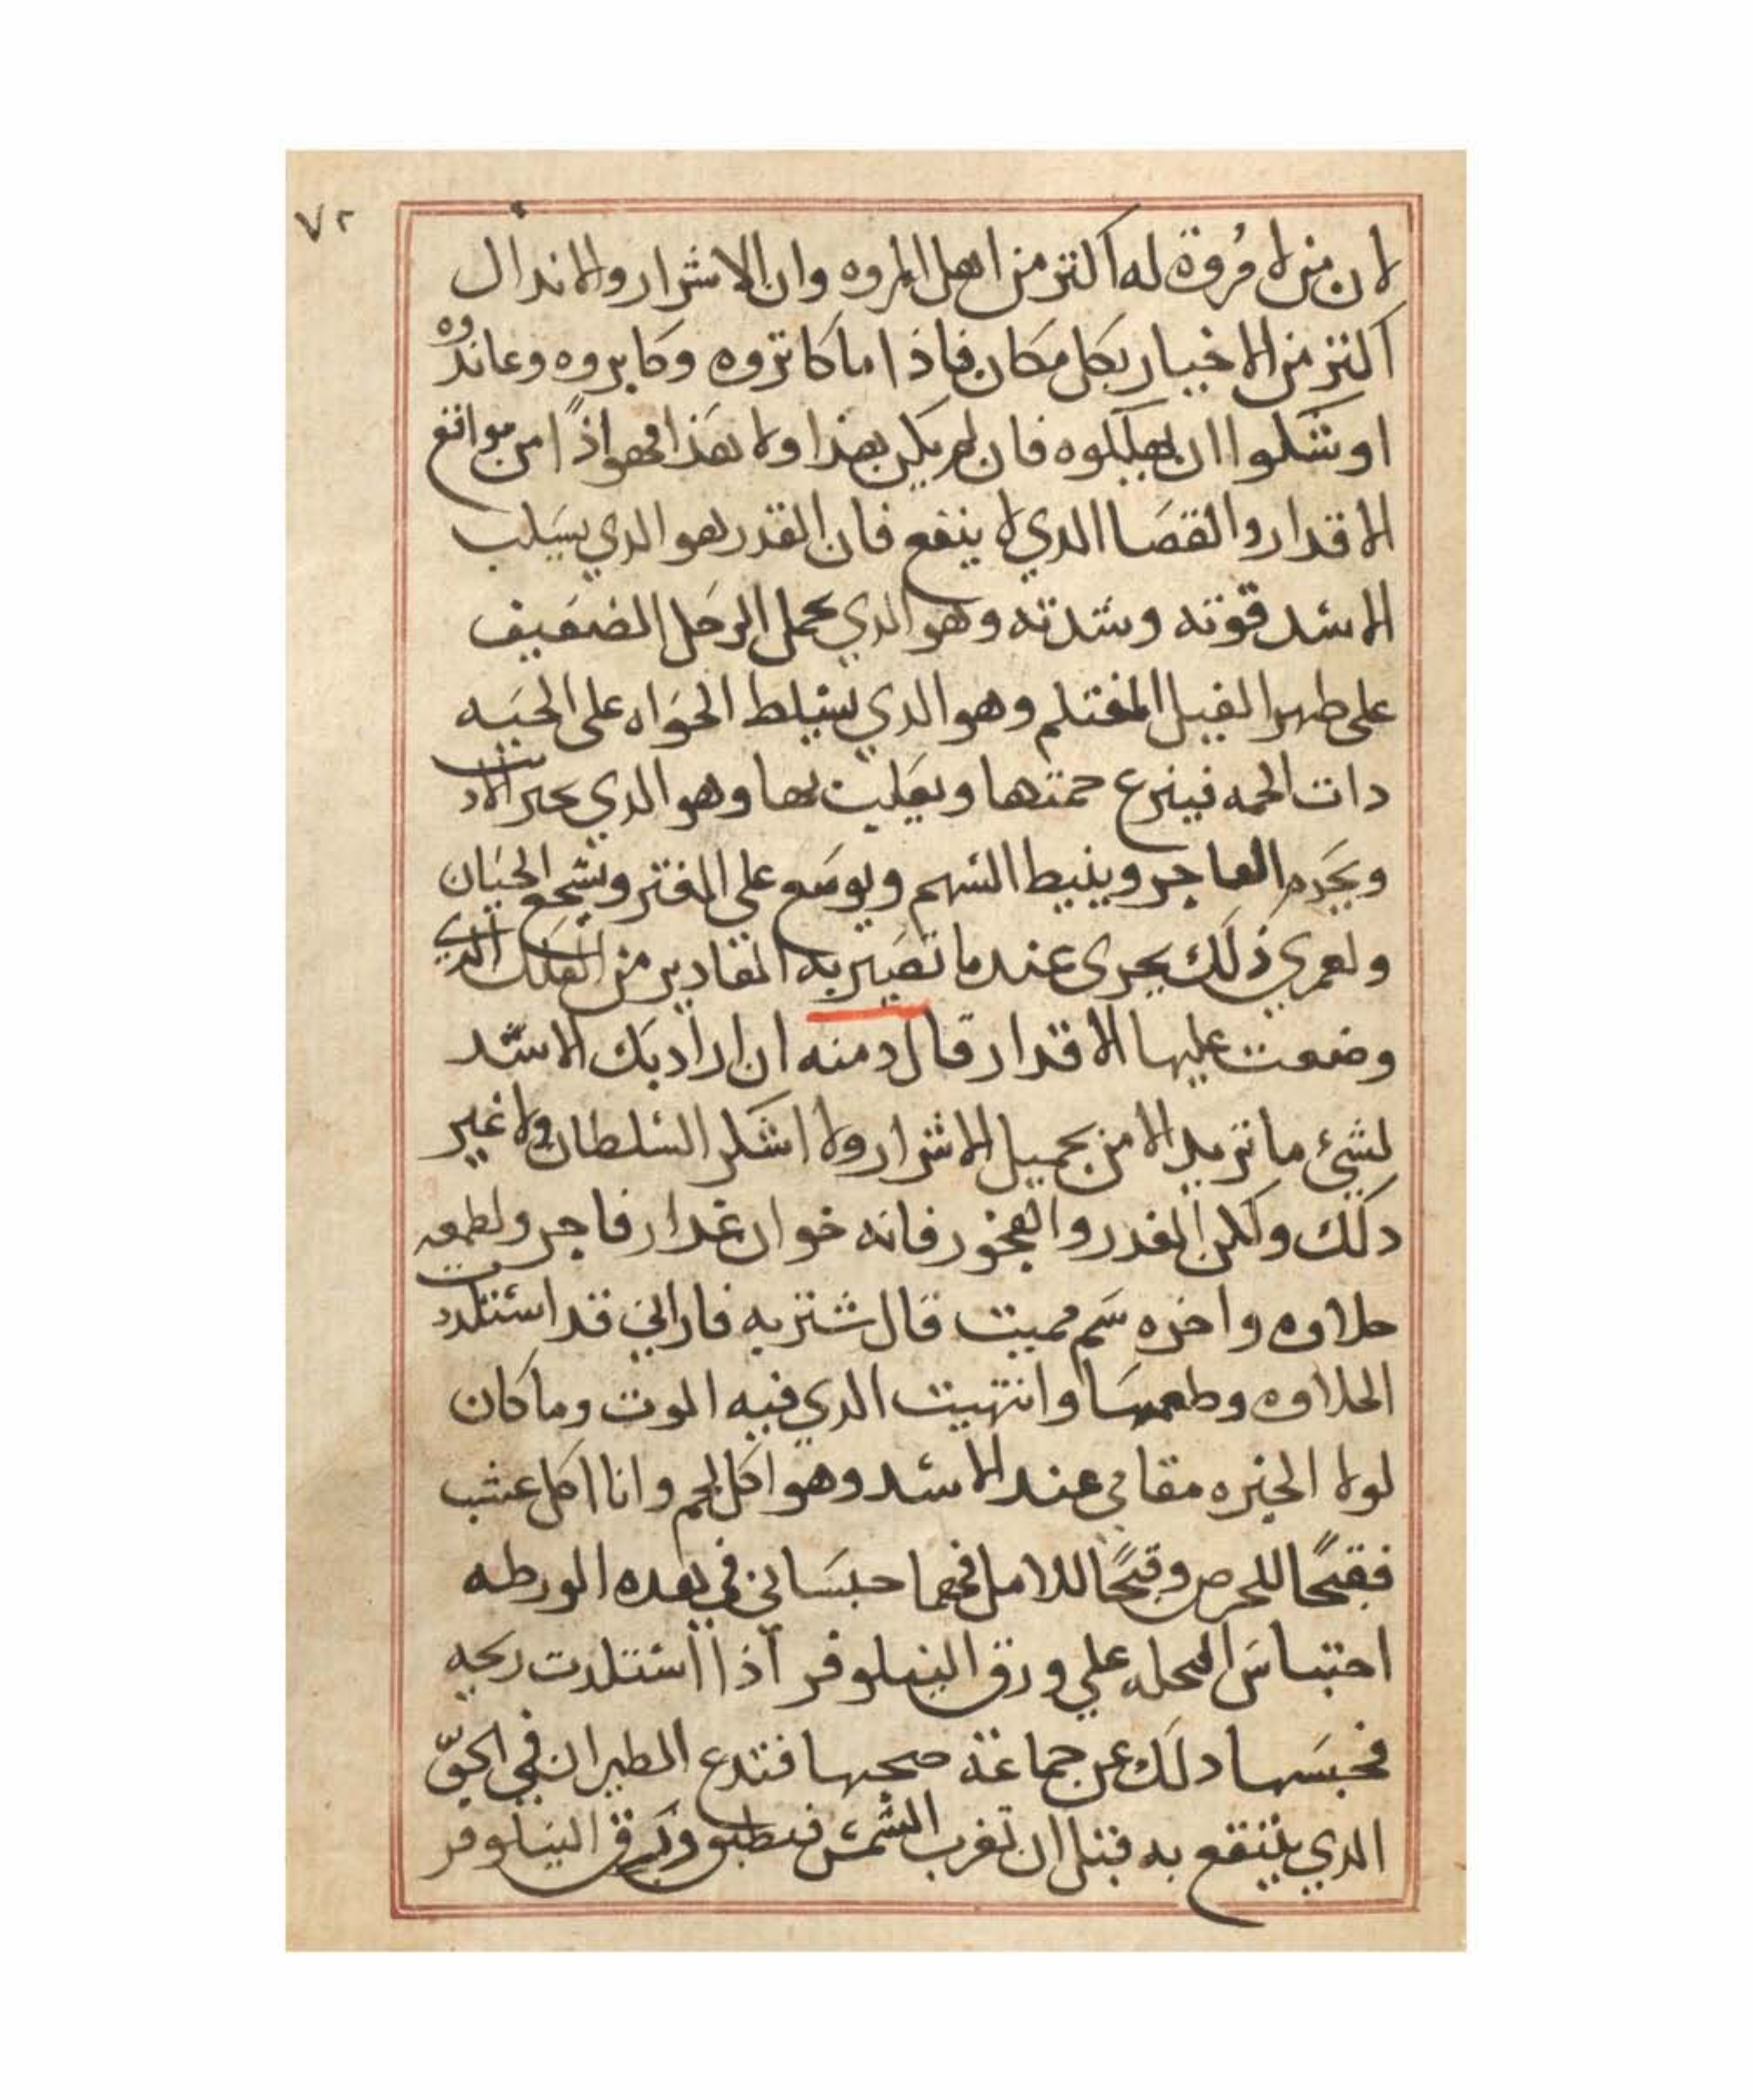 ٧٢
لان من لا مُروة له اكثر من اهل المروه وان الاشرار والاندال
اكثر من الاخيار بكل مكان فاذا ما كاثروه وكابروه وعاندوه
اوشكوا ان يهلكوه فان لم يكن بهذا ولا بهذا فهو اذًا من مواقع
الاقدار والقضا الدي لا ينفع فان القدر هو الدي يسلب
الاسد قوته وشدته وهو الدي يحمل الرجل الضعيف
على ظهر الفيل المغتلم وهو الدي يسلط الحواه على الحيه
دات الحمه فينزع حمتها ويعليت بها وهو الدي
العاجر ويثبط الشهم ويوسع على المقتر ويشجع الجبان
ولعمري ذلك يجرى عند ما تصير به المقادير من العلل الدي
وضعت عليها الاقدار قال دمنه ان اراد بك الاسد
لشيء ما تريد الا من بحميل الاشرار ولا اشكر السلطان ولا غير
دلك ولكن الغدر والفجور فانه خوان غدار فاجر ولطعمه
حلاوه واخره سم مميت قال شتربه فاراني قد استلدت
الحلاوه وطعمها وانتهيت الدي فيه الموت وما كان
لولا الحيره مقامي عند الاسد وهو اكل لحم وانا اكل عشب
فقبحًا للحرص وقبحًا للامل فهما حبساني في هده الورطه
احتباس النحله علي ورق النيلوفر اذا استلدت ريحه
فحبسها دلك عن جماعة صحبها فتدع الطيران في الجوّ
الدي ينتفع به قبل ان تغرب الشمس فينطبق ورق النيلوفر